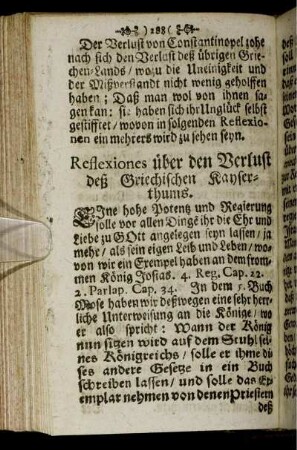 ) 188 (
Der Verlust von Constantinopel zohe
nach sich den Verlust deß übrigen Grie-
chen-Lands / wozu die Uneinigkeit und
der Mißverstandt nicht wenig geholffen
haben; Daß man wol von ihnen sa-
gen kan: sie haben sich ihr Unglück selbst
gestifftet / wovon in folgenden Reflexio-
nen ein mehrers wird zu sehen seyn.
Reflexiones über den Verlust
deß Griechischen Kayser-
thums.
Eine hohe Potentz und Regierung
solle vor allen Dingē ihr die Ehr und
Liebe zu GOtt angelegen seyn lassen / ja
mehr / als sein eigen Leib und Leben / wo-
von wir ein Exempel haben an dem from-
men König Josias. 4. Reg. Cap. 22.
2. Parlap. Cap. 34. In dem 5. Buch
Mose haben wir deßwegen eine sehr herr-
liche Unterweisung an die Könige / wo
er also spricht: Wann der König
nun sitzen wird auf dem Stuhl sei-
nes Königreichs / solle er ihme die-
ses andere Gesetze in ein Buch
schreiben lassen / und solle das Ex-
emplar nehmen von denen Priestern
deß